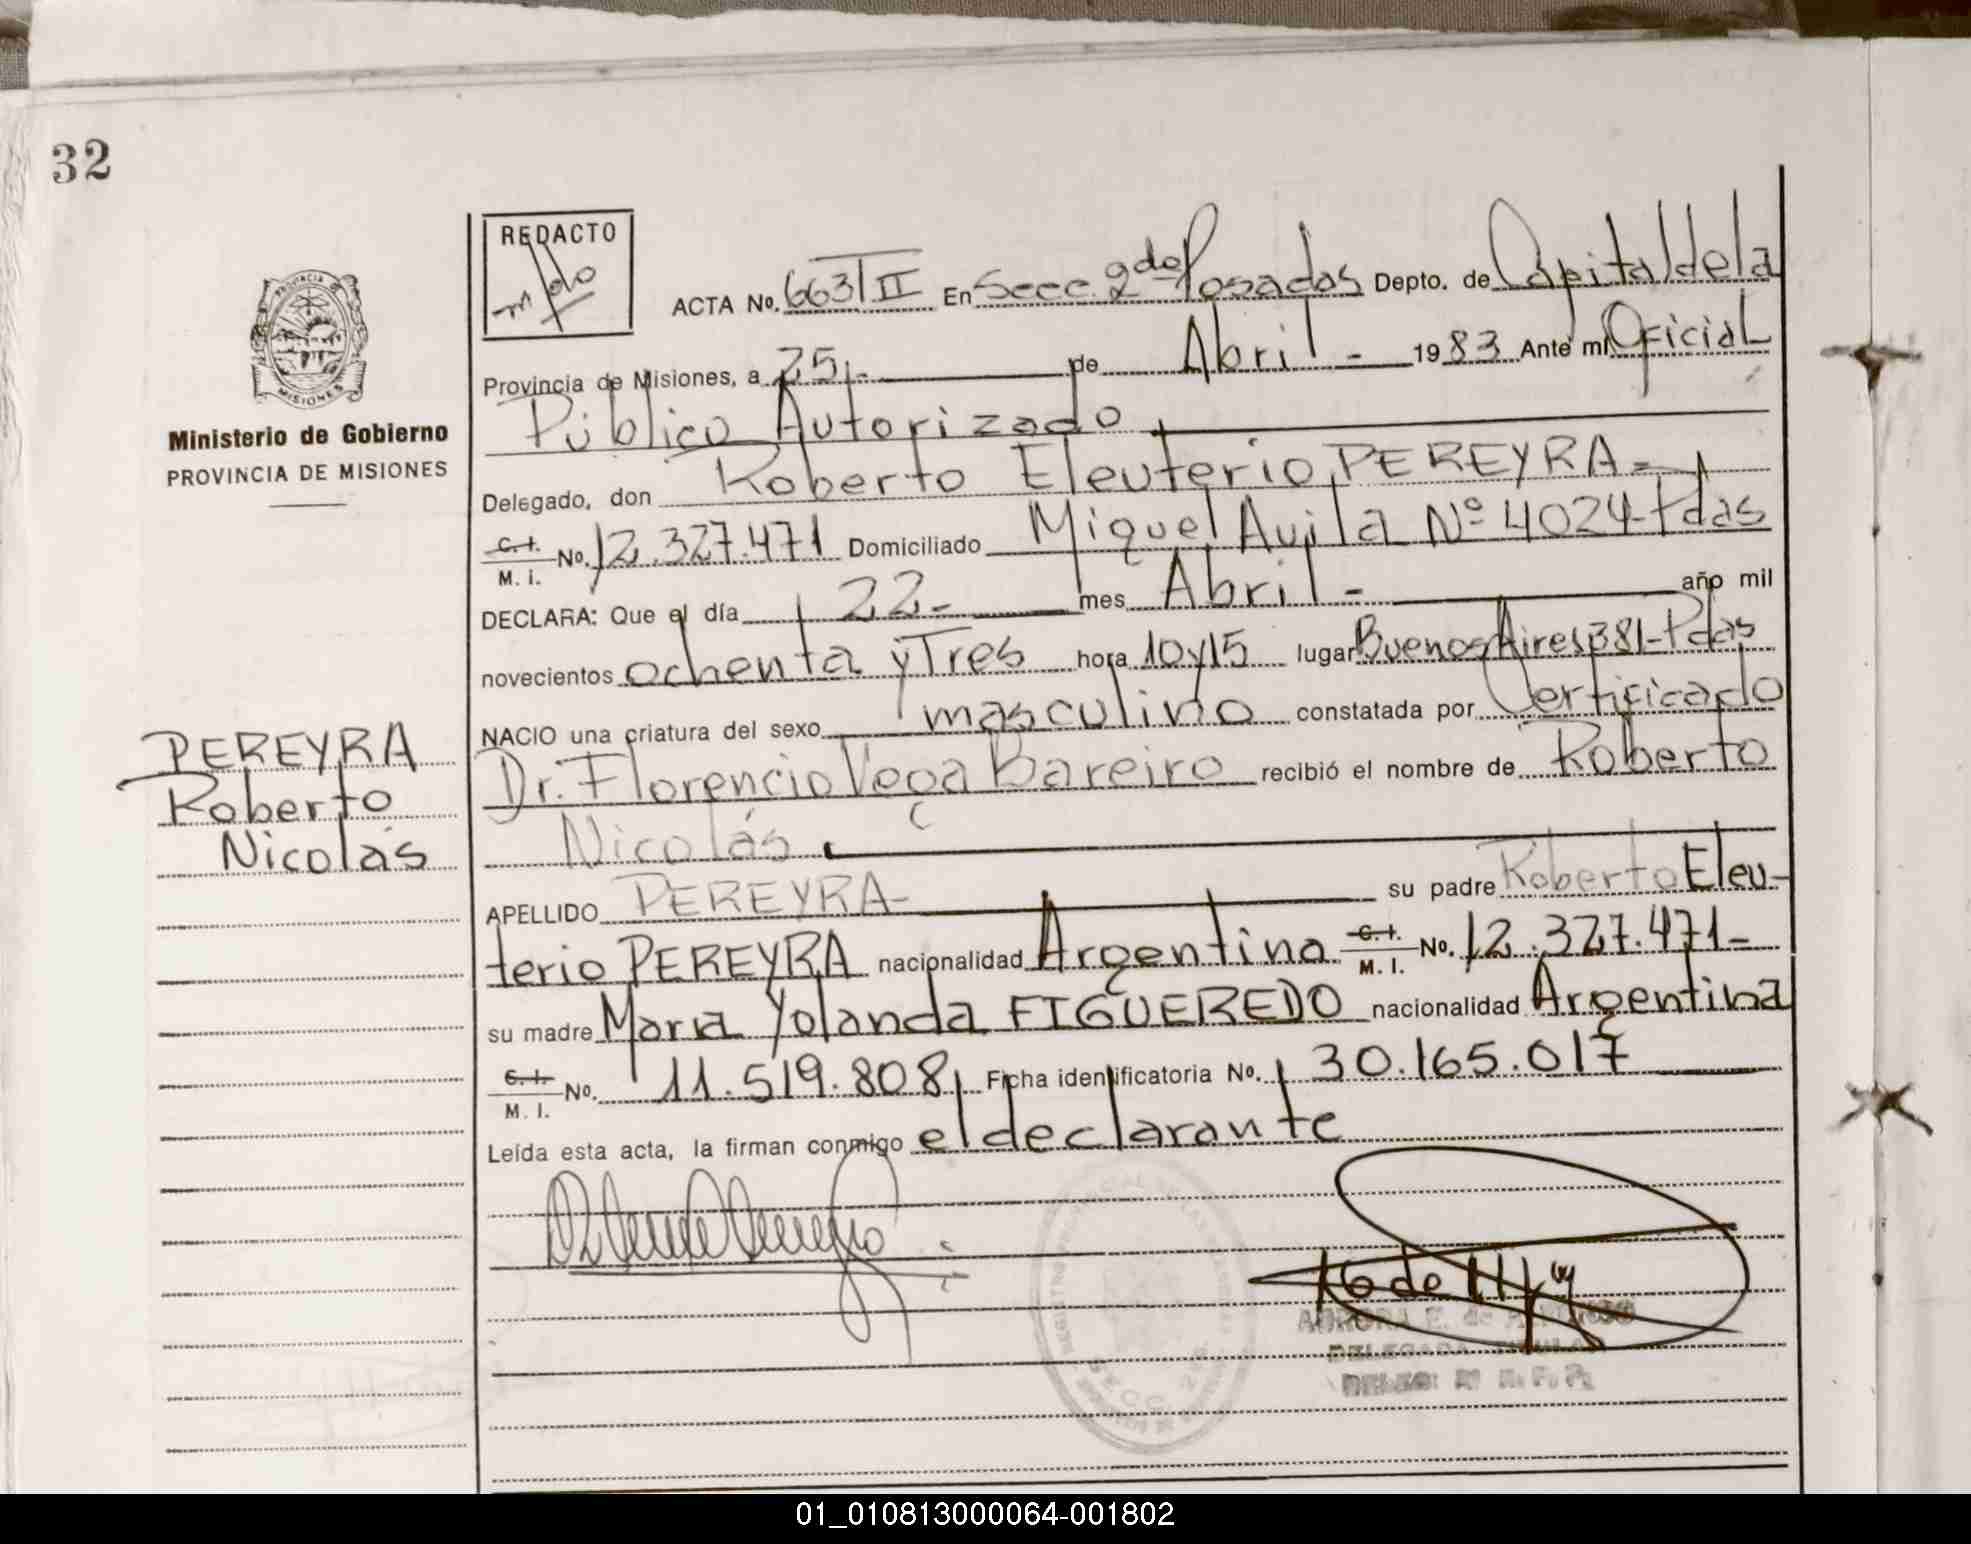 32
REDACTO
PROVINCIA
MISIONES
Ministerio de Gobierno
PROVINCIA DE MISIONES
ACTA No. 663/TII En Secc. 2da Posadas Depto. de Capital de la
Provincia de Misiones, a 25 de Abril 1983 Ante mí Oficial
Público Autorizado
Delegado, don Roberto Eleuterio PEREYRA
C. I. / M. I. No. 12.327.471 Domiciliado Miguel Avila Nº 4024-Pdas
DECLARA: Que el día 22 mes Abril año mil
novecientos ochenta y Tres hora 10 y 15 lugar Buenos Aires 381-Pdas
NACIO una criatura del sexo masculino constatada por Certificado
Dr. Florencio Vega Bareiro recibió el nombre de Roberto
Nicolás
PEREYRA
Roberto
Nicolás
APELLIDO PEREYRA su padre Roberto Eleu-
terio PEREYRA nacionalidad Argentina C. I. / M. I. No. 12.327.471
su madre Maria Yolanda FIGUEREDO nacionalidad Argentina
C. I. / M. I. No. 11.519.808 Ficha identificatoria No. 30.165.017
Leída esta acta, la firman conmigo el declarante
AURORA E. de
DELEGADA
01_010813000064-001802